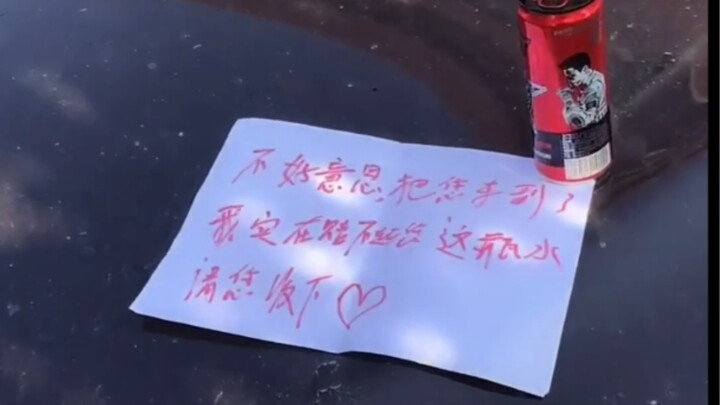 不好意思,把您车刮了
我实在赔不起您 这瓶水
请您收下♡